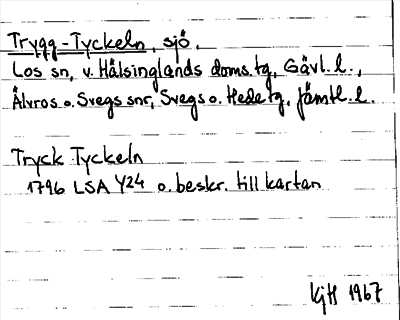 Trygg-Tyckeln, sjö.
Los sn, v. Hälsinglands doms. tg, Gävl. l.,
Älvros o. Svegs snr, Svegs o. Hede tg, Jämtl. l.
Tryck Tyckeln
1796 LSA Y24 o. beskr. till kartan
KjH 1967